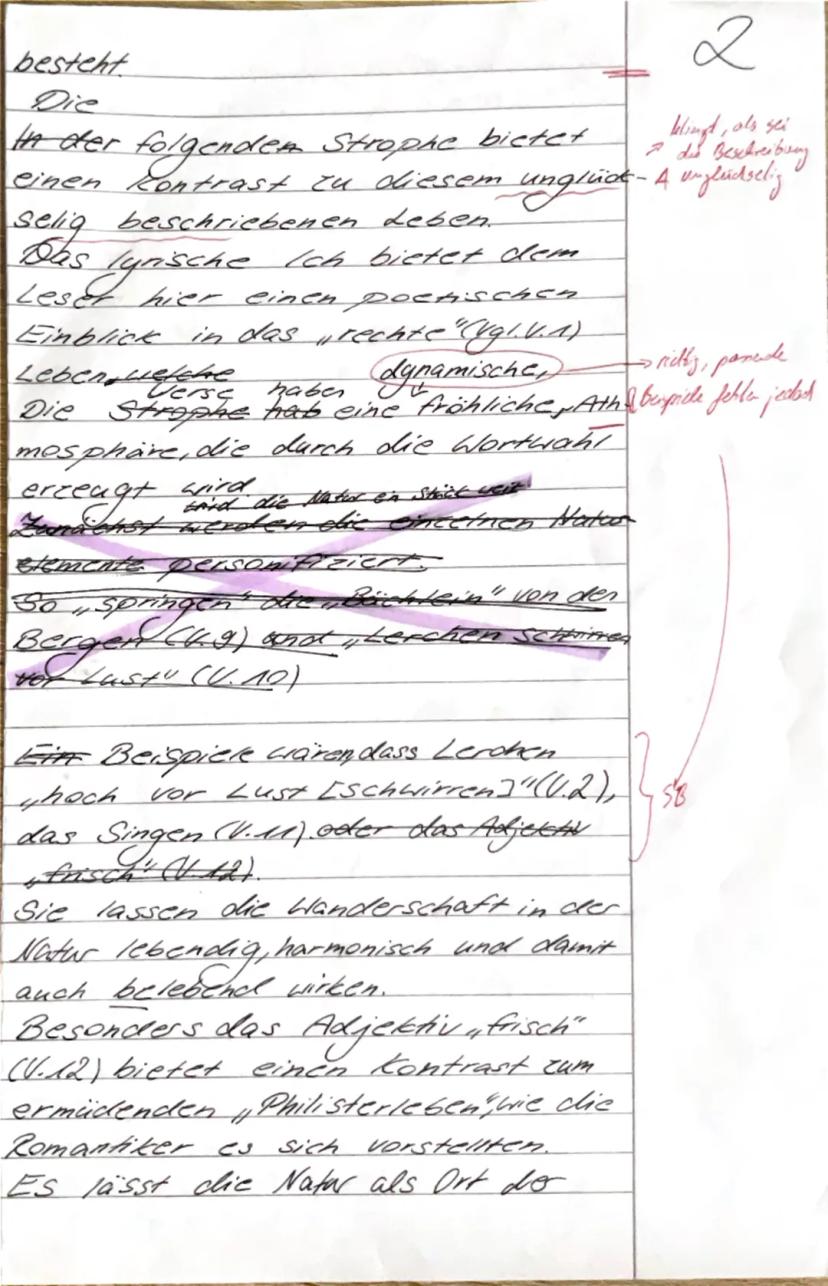 2
besteht.
Die
In der folgenden Strophe bietet
einen Kontrast zu diesem unglück-
selig beschriebenen Leben.
Das lyrische Ich bietet dem
Leser hier einen poetischen
Einblick in das „rechte“ (Vgl. V. 1)
Leben, welche
dynamische,
Verse haben
Die Strophe hat eine fröhliche, Ath-
mosphäre, die durch die Wortwahl
erzeugt wird
wird die Natur ein Stück weit
Zunächst werden die einzelnen Natur
elemente personifiziert.
So „springen“ die „Bächlein“ von den
Bergen (V. 9) und „Lerchen schwirren
vor Lust“ (V. 10)
Ein Beispiele wären, dass Lerchen
„hoch vor Lust [schwirren]“ (V. 2),
das Singen (V. 11) oder das Adjektiv
„frisch“ (V. 12).
Sie lassen die Wanderschaft in der
Natur lebendig, harmonisch und damit
auch belebend wirken.
Besonders das Adjektiv „frisch“
(V. 12) bietet einen Kontrast zum
ermüdenden „Philisterleben“, wie die
Romantiker es sich vorstellten.
Es lässt die Natur als Ort der
klingt, als sei
die Beschreibung
A unglückselig
richtig, passende
Beispiele fehlen jedoch
SB